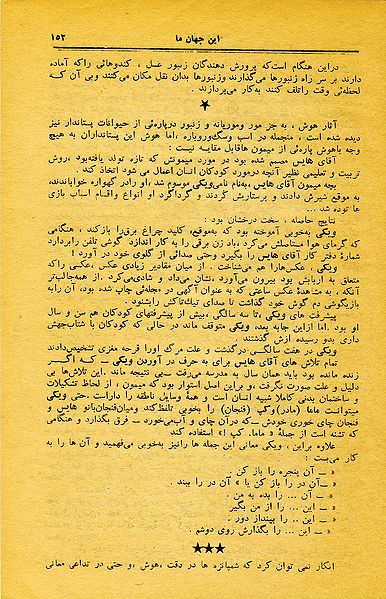 این جهان ما ۱۵۲
دراین هنگام است‌که پرورش دهندگان زنبور عسل ، کندوهائی راکه آماده
دارند بر سر راه زنبورها میگذارند وزنبورها بدان نقل مکان می‌کنند وبی آن کــه
لحظه‌ئی وقت راتلف کنند به‌کار می‌پردازند .
آثار هوش ، به جز مور وموریانه و زنبور درپاره‌ئی از حیوانات پستاندار نیز
دیده شده است ، منجمله در اسب وسگ‌وروباه ، اما هوش این پستانداران به هیچ
وجه باهوش پاره‌ئی از میمون هاقابل مقایسه نیست :
آقای هایس مصمم شده بود در مورد میمونش که تازه تولد یافته‌بود ،روش
تربیت و تعلیمی نظیر آنچه درمورد کودکان انسان اعمال می شود اتخاذ کند .
بچه میمون آقای هایس ،به‌نام نامی‌ویکی موسوم شد ،او رادر گهواره خواباندند،
به موقع شیرش دادند و پرستاریش کردند و گرداگرد او انواع واقسام اسباب بازی
ها توده شد ...
نتایج حاصله ، سخت درخشان بود :
ویکی به‌خوبی آموخته بود که به‌موقع، کلید چراغ برق‌را بازکند ، هنگامی
که گرمای هوا مستاصلش می‌کرد ،باد زن برقی را به کار اندازد گوشی تلفن رابردارد
شمارهٔ دفتر کار آقای هایس را بگیرد وحتی صدائی از گلوی خود در آورد !
ویکی ، عکس‌هارا هم می‌شناخت . از میان مقادیر زیادی عکس ،عکسی راکه
متعلق به اربابش بود بیرون می‌آورد ،نشان می‌داد و شادی‌می‌کرد .از همه‌جالب‌تر
آنکه ، به مشاهدهٔ عکس ساعتی که به عنوان آگهی در مجله‌ئی چاپ شده بود، آن رابه
بازیگوشی دم گوش خود گذاشت تا صدای تیک‌تاکش رابشنود .
پیشرفت های ویکی ،تا سه سالگی ،بیش از پیشرفتهای کودکان هم سن و سال
او بود .اما ازاین جابه بعد، ویکی متوقف ماند در حالی که کودکان با شتاب‌جهش
داری بدو رسیده ازش گذشتند
ویکی در هفت سالگی درگذشت و علت مرگ اورا قرحه مغزی تشخیص‌دادند
تمام تلاش های آقای هایس برای به حرف در آوردن ویکی ــ کــه اگــر
زنده مانده بود باید همان سال به مدرسه می‌رفت ــ بی نتیجه ماند .این تلاش‌ها بی
دلیل و علت صورت نگرفت ،و براین اصل استوار بود که میمون ، از لحاظ تشکیلات
و ساختمان بدنی کاملا شبیه انسان است و همهٔ وسایل ناطقه را داراست .حتی ویکی
میتوانست ماما (مادر) وکپ (فنجان) را بخوبی تلفظ‌کند ومیان‌فنجان‌بانو هایس و
فنجان چای خوری خودش ــ‌که درآن چای و آب‌می‌خورد ــ فرق بگذارد و هنگامی
که تشنه است از جملهٔ « ماما. کپ ۱» استفاده کند
علاوه براین ، ویکی معانی این جمله ها رانیز به‌خوبی می‌فهمید و آن ها را به
کار می‌بست :
« ــ آن پنجره را باز کن .
« ــ آن در را باز کن یا » آن در را ببند .
« ــ آن ... را بده به من .
« ــ این ... را از من بگیر
« ــ این .. را بینداز دور .
« ــ این ... را بگذارش روی دوشم .
انکار نمی توان کرد که شمپانزه ها در دقت ،هوش ،و حتی در تداعی معانی